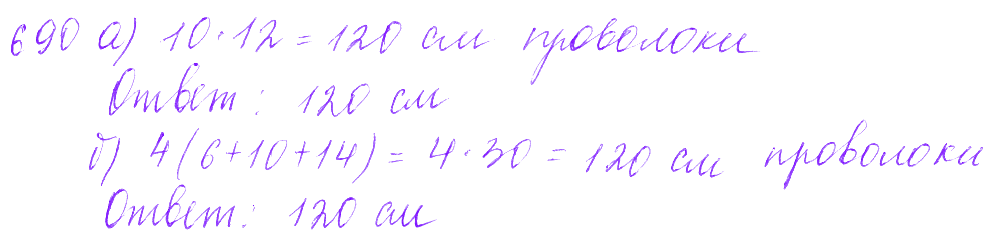 690 а) 10·12 = 120 см проволоки
Ответ: 120 см
б) 4(6+10+14) = 4·30 = 120 см проволоки
Ответ: 120 см